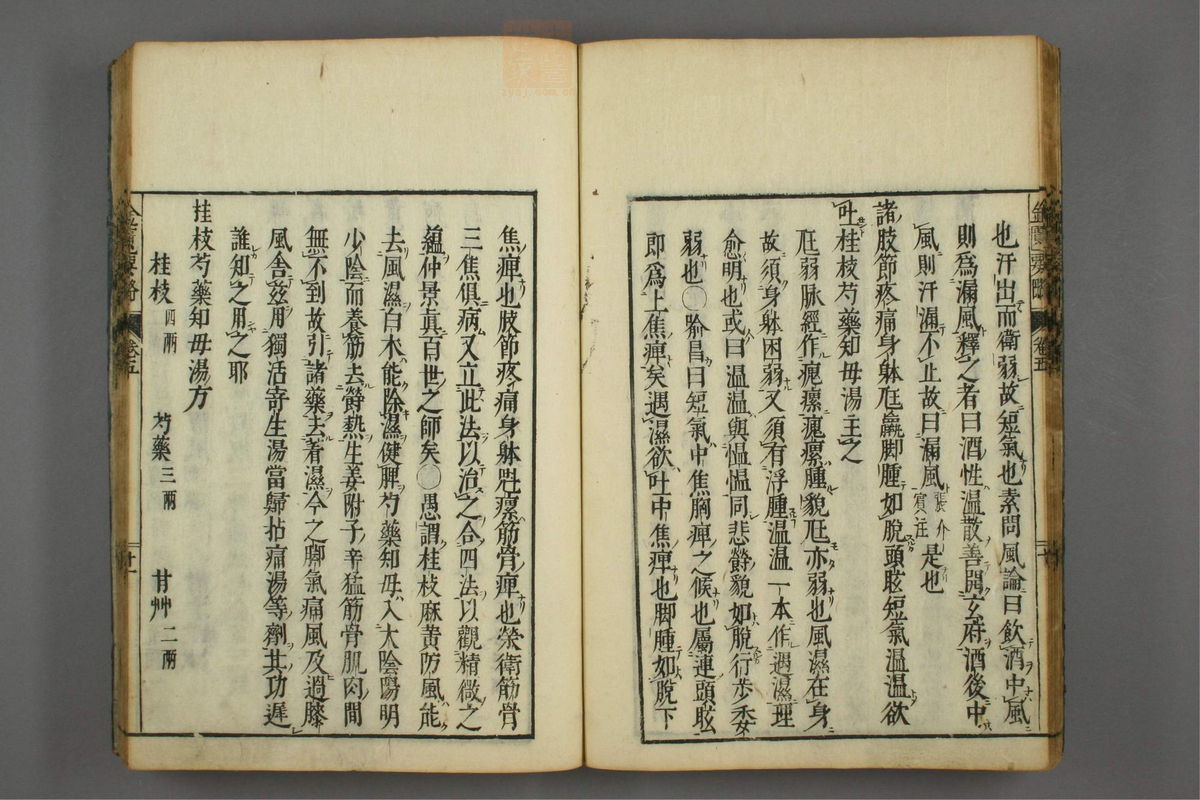 也汗出而衛弱故短氣也素問風論曰飲酒中風
則爲漏風釋之者曰酒性温散善開玄府酒後中
風則汗漏不止故曰漏風張介賓注是也
諸肢節疼痛身躰尫羸脚腫如脫頭眩短氣温温欲
吐桂枝芍藥知毋湯主之
尫弱脉經作瘣瘰瘣瘰腫貌尫亦弱也風濕在身
故須身躰困弱又須有浮腫温温一本作遇濕理
愈明也或曰温温與愠愠同悲欝貌如脫行步
弱也〇喻昌曰短氣中焦胸痺之候也屬連頭眩
即爲上焦痺矣遇濕欲吐中焦痺也脚腫如脫下
焦痺也肢節疼痛身躰瘰筋骨痺也榮衛筋骨
三焦俱病又立此法以治之合四法以觀精微之
蘊仲景真百世之師矣〇愚謂桂枝麻黄防風能
去風濕白朮能除濕健脾芍藥知毋入太陰陽明
少陰而養筋去欝熱生姜附子辛猛筋骨肌肉間
無不到故引諸藥去著濕今之脚氣痛風及過膝
風舍茲用獨活寄生湯當歸拈痛湯等劑其功遲
誰知之用之耶
桂枝芍藥知毋湯方
桂枝四兩 芍藥三兩 甘艸二兩
金匱要略 卷五 廿
金匱要略 卷五 廿一